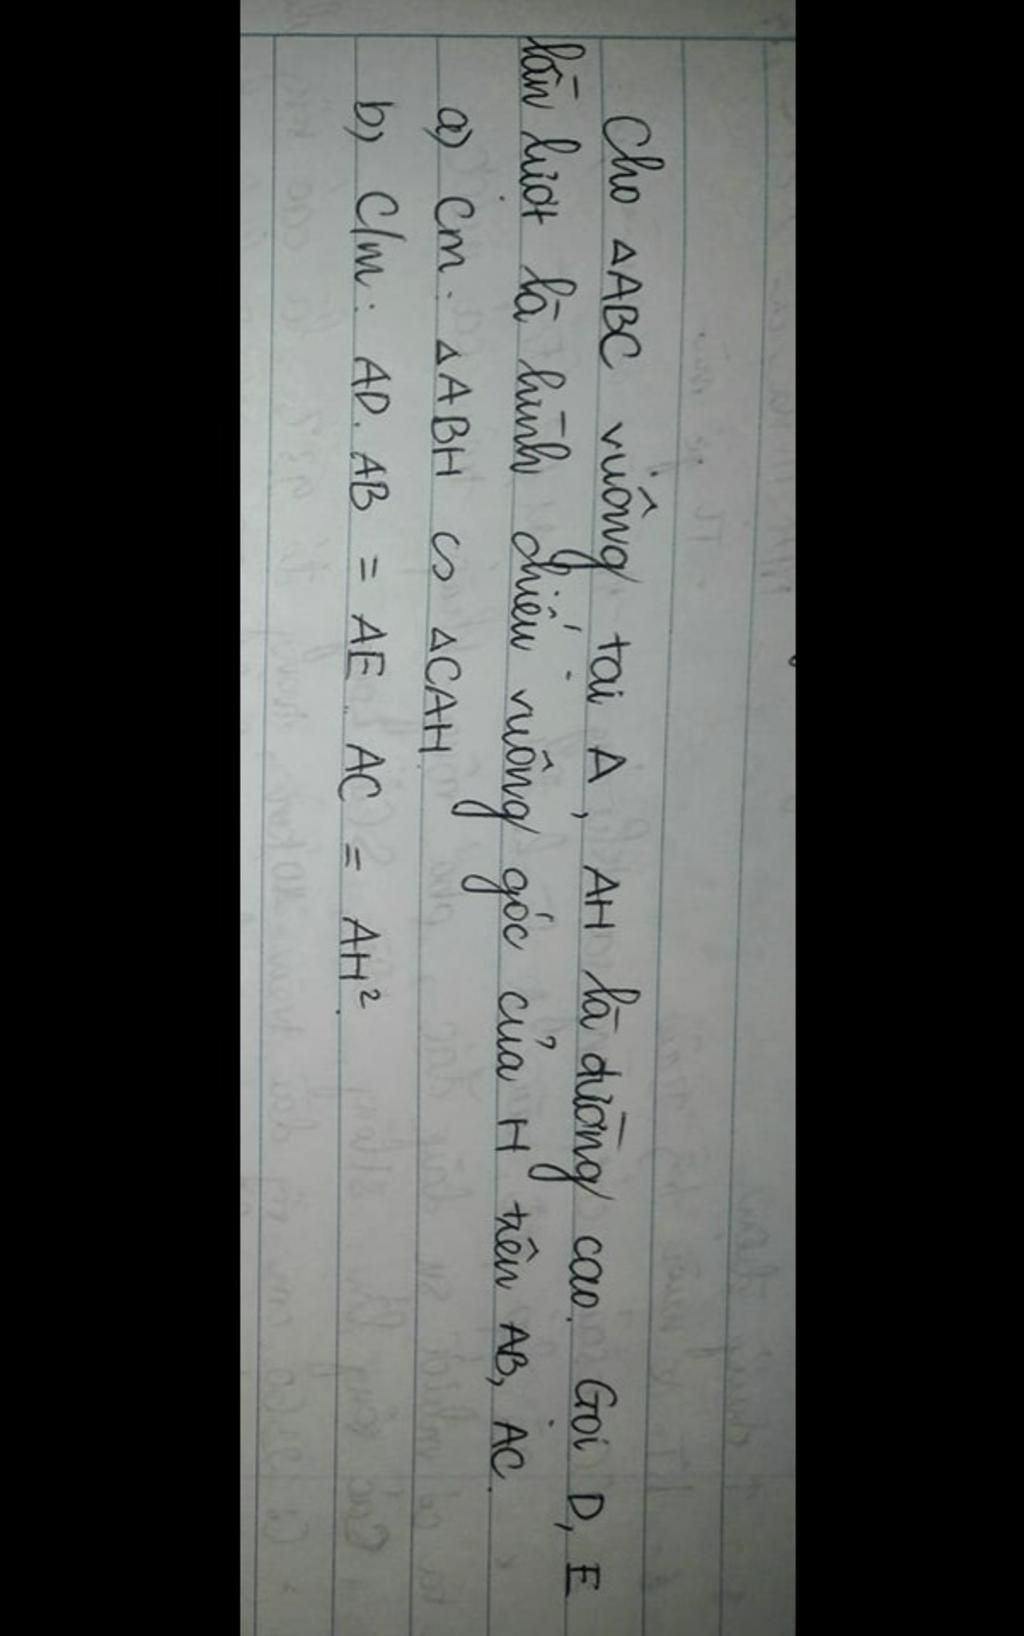 Cho △ABC vuông tại A, AH là đường cao. Gọi D, E
lần lượt là hình chiếu vuông góc của H trên AB, AC.
a) Cm: △ABH ∽ △CAH.
b) C/m: AD.AB = AE.AC = AH².